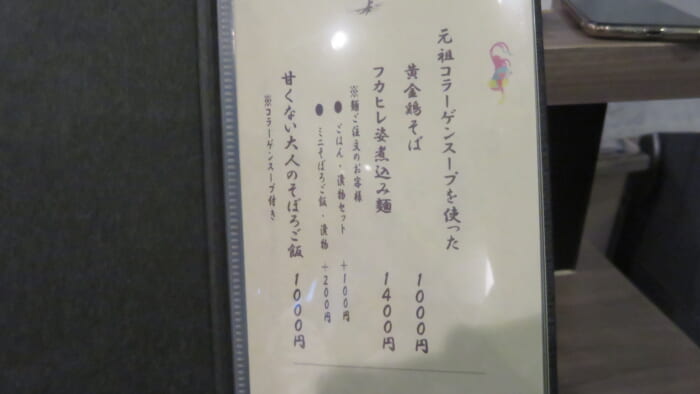 元祖コラーゲンスープを使った
黄金鶏そば 1000円
フカヒレ姿煮込み麺 1400円
※麺ご注文のお客様
●ごはん・漬物セット +100円
●ミニそぼろご飯・漬物 +200円
甘くない大人のそぼろご飯 1000円
※コラーゲンスープ付き